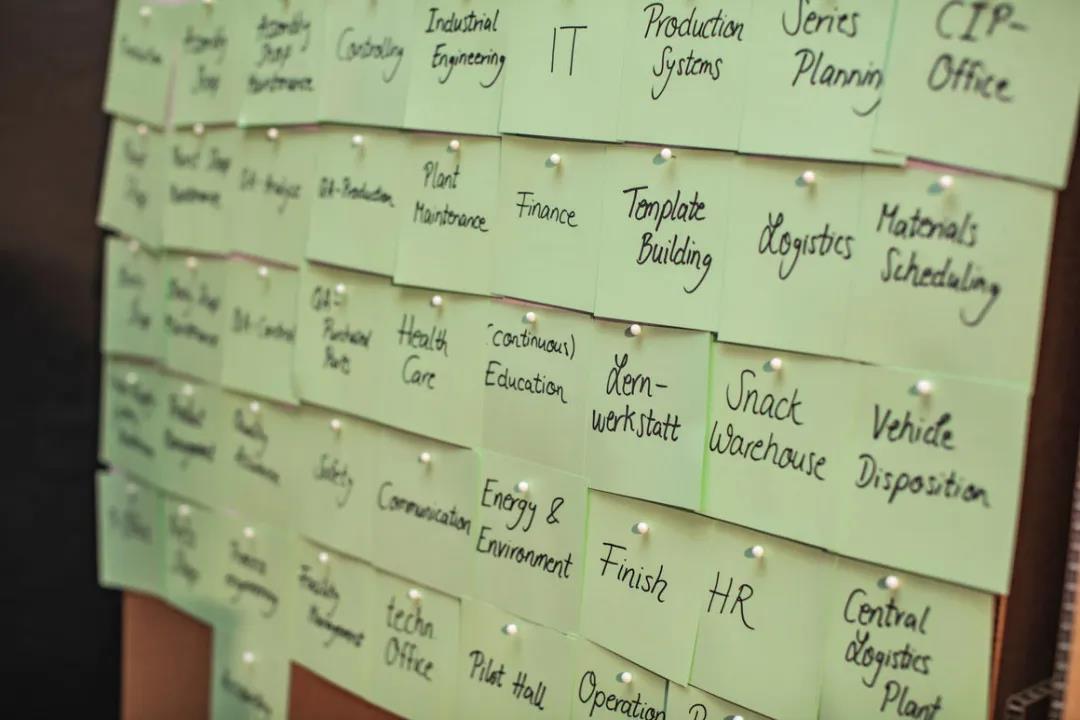 Assembly
Shop
Assembly
Shop
Maintenance
Controlling
Industrial
Engineering
IT
Production
Systems
Series
Planning
CIP-
Office
Paint Shop
Maintenance
QA-Analyse
QA-Production
Plant
Maintenance
Finance
Template
Building
Logistics
Materials
Scheduling
Body
Shop
Body Shop
Maintenance
QA-Control
QA-
Purchased
Parts
Health
Care
(continuous)
Education
Lern-
werkstatt
Snack
Warehouse
Vehicle
Disposition
Product
Management
Quality
Assurance
Safety
Communication
Energy &
Environment
Finish
HR
Central
Logistics
Plant
Shop
Process
engineering
Facility
Management
techn.
Office
Pilot Hall
Operation